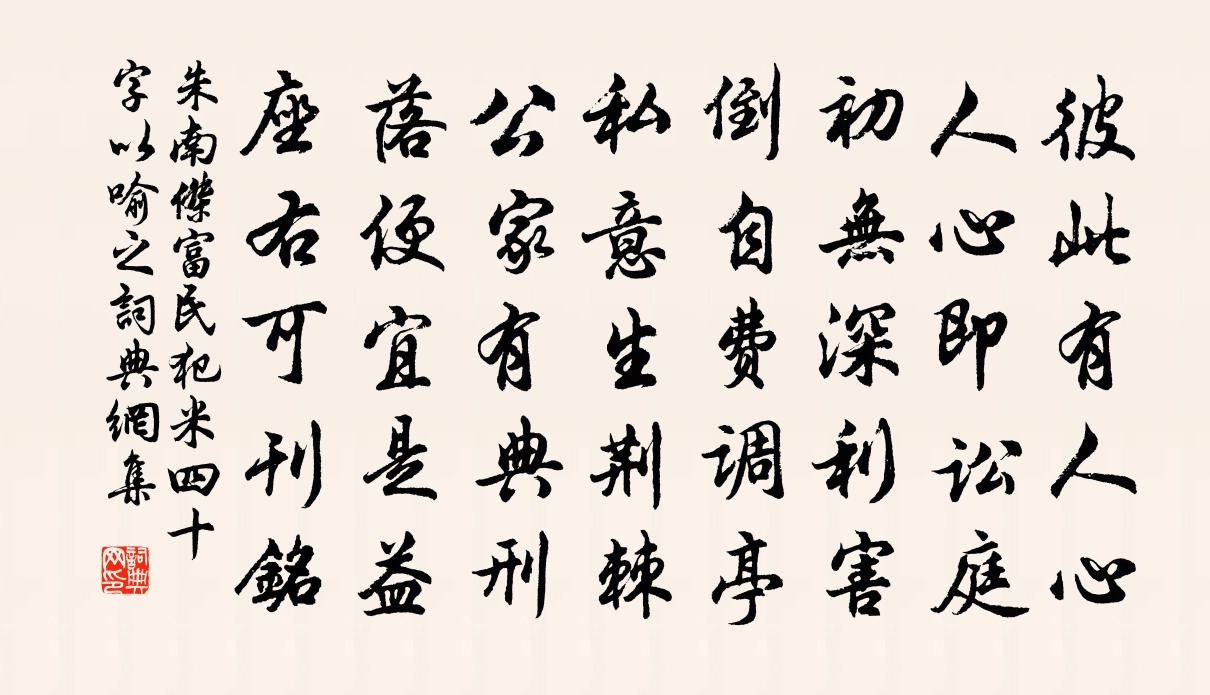 彼此有人心
人心即讼庭
初無深利害
倒自费调亭
私意生荆棘
公家有典刑
落便宜是益
座右可刊銘
朱南傑富民犯米四十
字以喻之詞典網集
詞典
网印